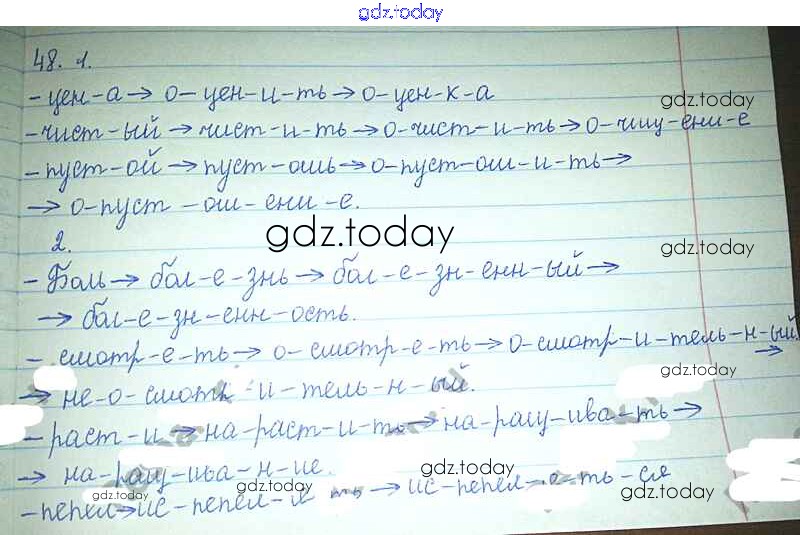 gdz.today
48. 1.
gdz.today
-цен-а→ о-цен-и-ть→ о-цен-к-а
-чист-ый→ чист-и-ть→ о-чист-и-ть→ о-чищ-ени-е
-пуст-ой→ пуст-ошь→ о-пуст-ош-и-ть→
→ о-пуст-ош-ени-е.
2.
gdz.today
gdz.today
-Боль→ бол-е-знь→ бол-е-зн-енн-ый→
→ бол-е-зн-енн-ость.
- смотр-е-ть→ о-смотр-е-ть→ о-смотр-и-тель-н-ый→
gdz.today
→ не-о-смотр-и-тель-н-ый.
-раст-и→ на-раст-и-ть→ на-ращ-ива-ть→
→ на-ращ-ива-н-ие.
gdz.today
gdz.today
-пепел→ис-пепел-и-ть→ ис-пепел-ть-ся
gdz.today